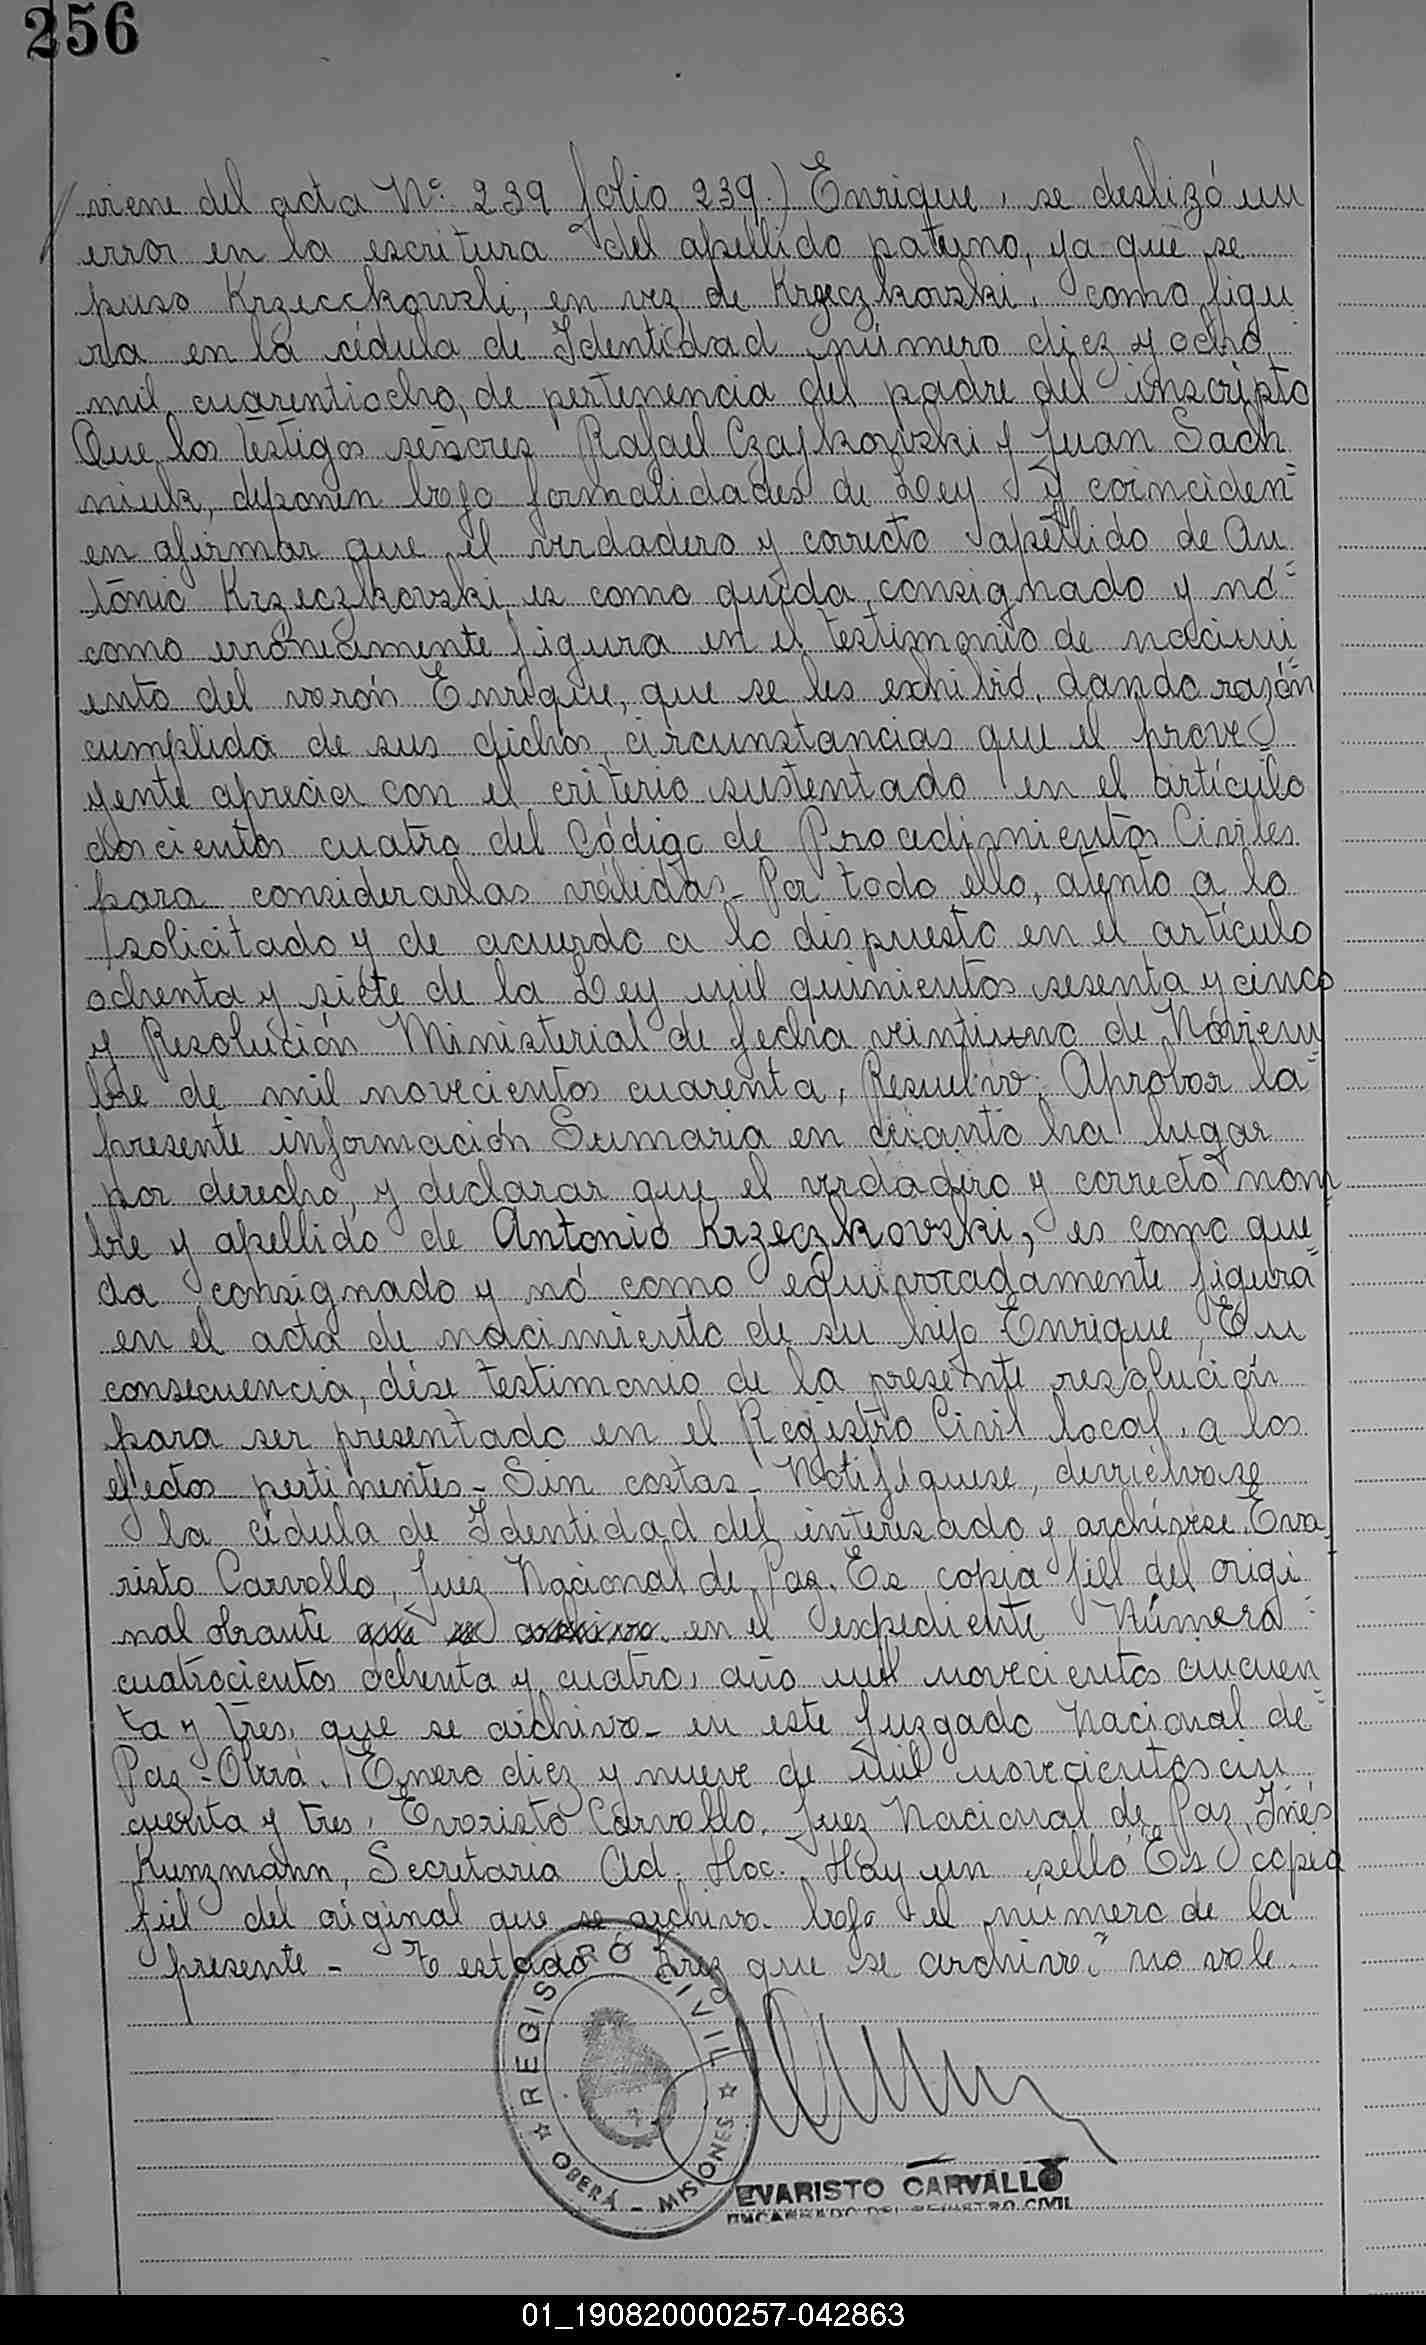 256
viene del acta Nº 239 folio 239.) Enrique, se deslizó un
error en la escritura del apellido paterno, ya que se
puso Krzecckowski, en vez de Krzeczkovski, como figu
ra en la cédula de Identidad número diez y ocho
mil cuarentiocho, de pertenencia del padre del inscripto
Que los testigos señores Rafael Czajkowski y Juan Sach
niuk, deponen bajo formalidades de Ley y coinciden
en afirmar que el verdadero y correcto apellido de An
tonio Krzeczkovski, es como queda consignado y nó
como erróneamente figura en el testimonio de nacimi
ento del varón Enrique, que se les exhibió, dando razón
cumplida de sus dichos, circunstancias que el prove
yente aprecia con el criterio sustentado en el artículo
doscientos cuatro del Código de Procedimientos Civiles
para considerarlas válidas - Por todo ello, atento a lo
solicitado y de acuerdo a lo dispuesto en el artículo
ochenta y siete de la Ley mil quinientos sesenta y cinco
y Resolución Ministerial de fecha veintiuno de Noviem
bre de mil novecientos cuarenta, Resuelvo: Aprobar la
presente información Sumaria en cuanto ha lugar
por derecho, y declarar que el verdadero y correcto nom
bre y apellido de Antonio Krzeczkovski, es como que
da consignado y nó como equivocadamente figura
en el acta de nacimiento de su hijo Enrique, En
consecuencia, dése testimonio de la presente resolución
para ser presentado en el Registro Civil local, a los
efectos pertinentes - Sin costas - Notifíquese, devuélvase
la cédula de Identidad del interesado y archívese. Eva
risto Carvallo, Juez Nacional de Paz. Es copia fiel del origi
nal obrante que se archiva en el expediente Número
cuatrocientos ochenta y cuatro, año mil novecientos cincuen
ta y tres, que se archiva - en este Juzgado Nacional de
Paz - Oberá. Enero diez y nueve de mil novecientos cin
cuenta y tres, Evaristo Carvallo. Juez Nacional de Paz, Inés
Kunzmann, Secretaria Ad. Hoc. Hay un sello Es copia
fiel del original que se archiva bajo el número de la
presente - Testado que se archiva" no vale.
REGISTRO CIVIL
OBERÁ - MISIONES
EVARISTO CARVALLO
ENCARGADO DEL REGISTRO CIVIL
01_190820000257-042863